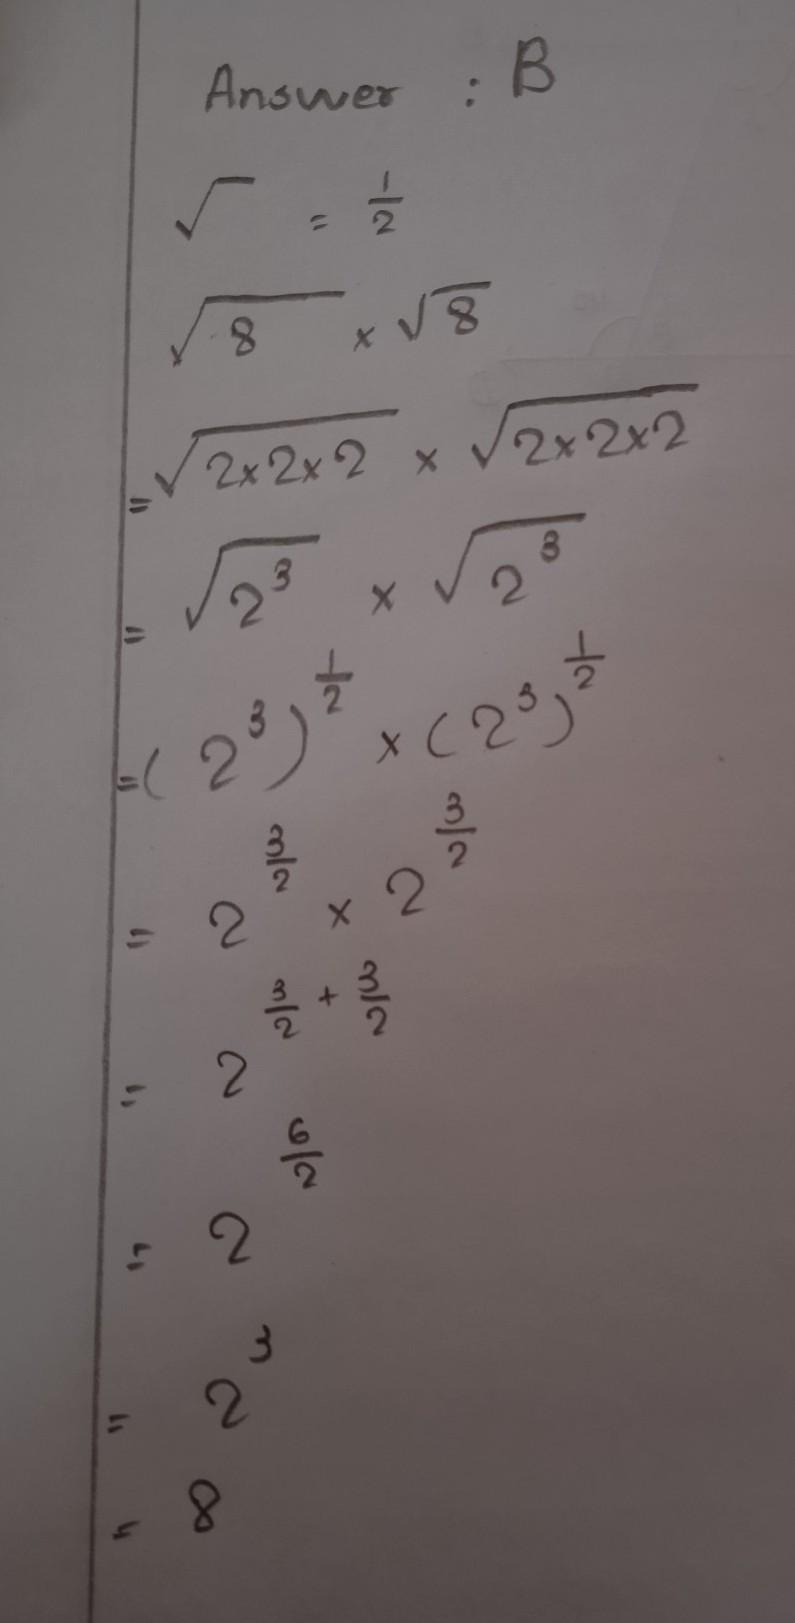 Answer : B
√ = 1/2
√8 × √8
= √2×2×2 × √2×2×2
= √2³ × √2³
= (2³)^1/2 × (2³)^1/2
= 2^3/2 × 2^3/2
= 2^3/2 + 3/2
= 2^6/2
= 2³
= 8